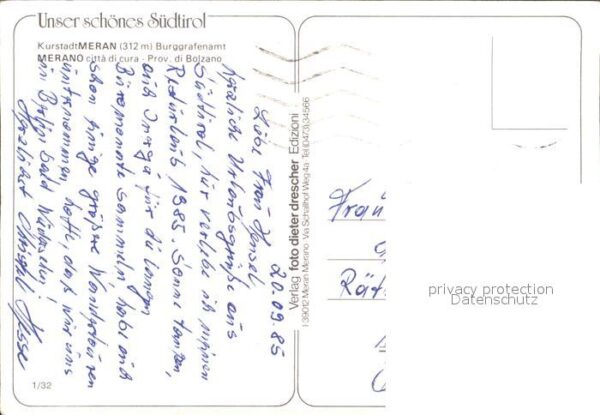 Unser schönes Südtirol
Kurstadt MERAN (312 m) Burggrafenamt
MERANO città di cura - Prov. di Bolzano
20.09.85
Liebe Frau Hensel
herzliche Urlaubsgrüße aus
Südtirol, hier verlebe ich meinen
Resturlaub 1985. Sonne tanken,
und Energie für die langen
Büromonate sammeln, habe auch
schon einige größere Wandertouren
unternommen, hoffe, daß wir uns
in Berlin bald Wiedersehen!
Herzlichst Christel Hesse
1/32
Verlag foto dieter drescher Edizioni
I 39012 Meran Merano · Via Schaffhof Weg 4a · Tel (0473) 34566
Frau
privacy protection
Datenschutz